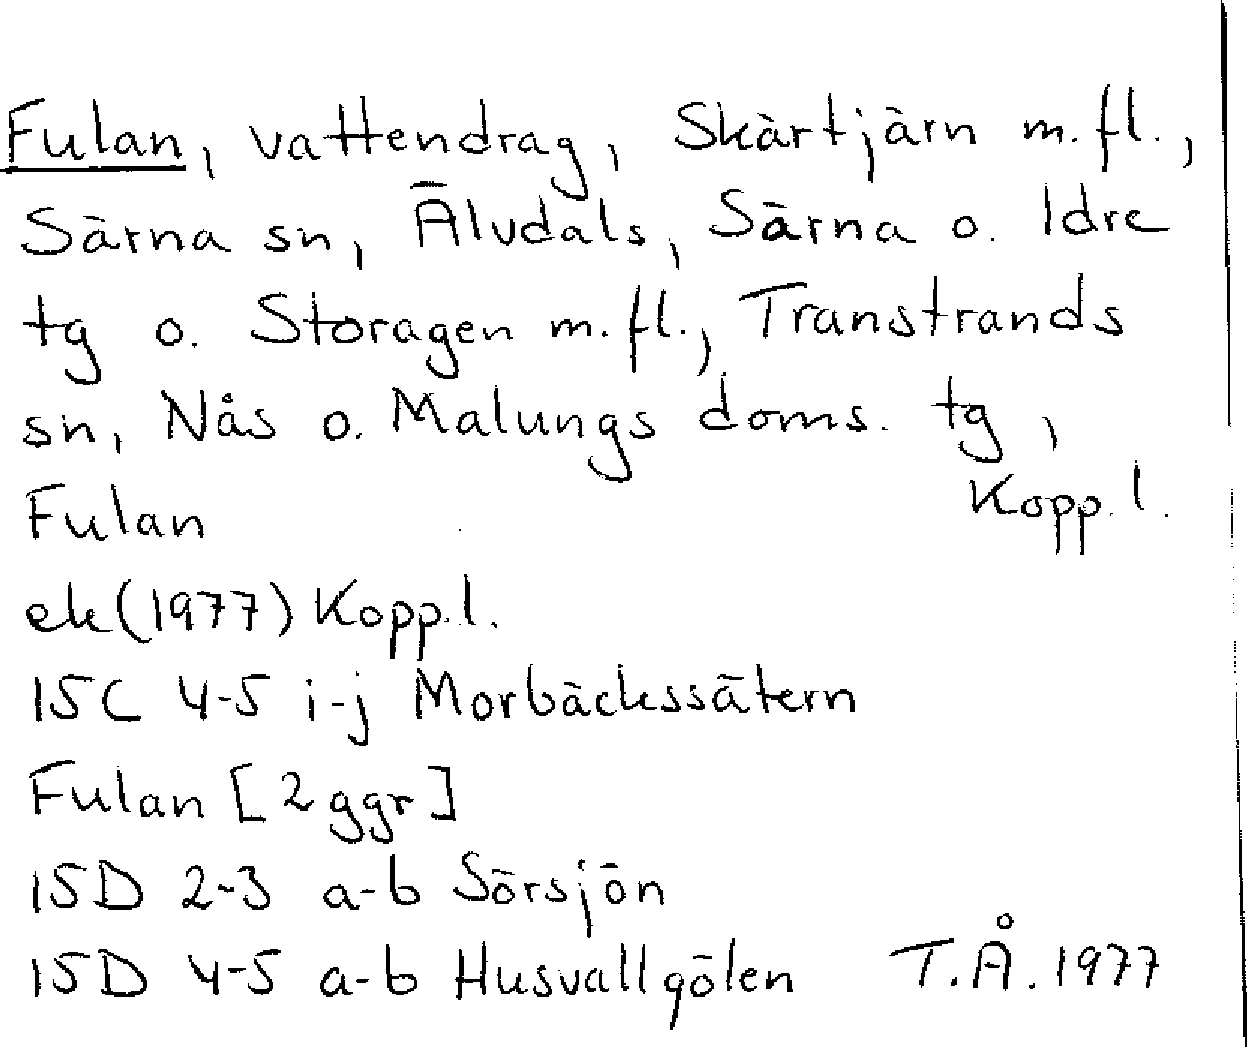 Fulan, vattendrag, Skärtjärn m.fl.,
Särna sn, Älvdals, Särna o. Idre
tg o. Storagen m.fl., Transtrands
sn, Nås o. Malungs doms. tg,
Kopp. l.
Fulan
ek(1977) Kopp.l.
15C 4-5 i-j Morbäckssätern
Fulan [2 ggr]
15D 2-3 a-b Sörsjön
15D 4-5 a-b Husvallgölen T.Å. 1977